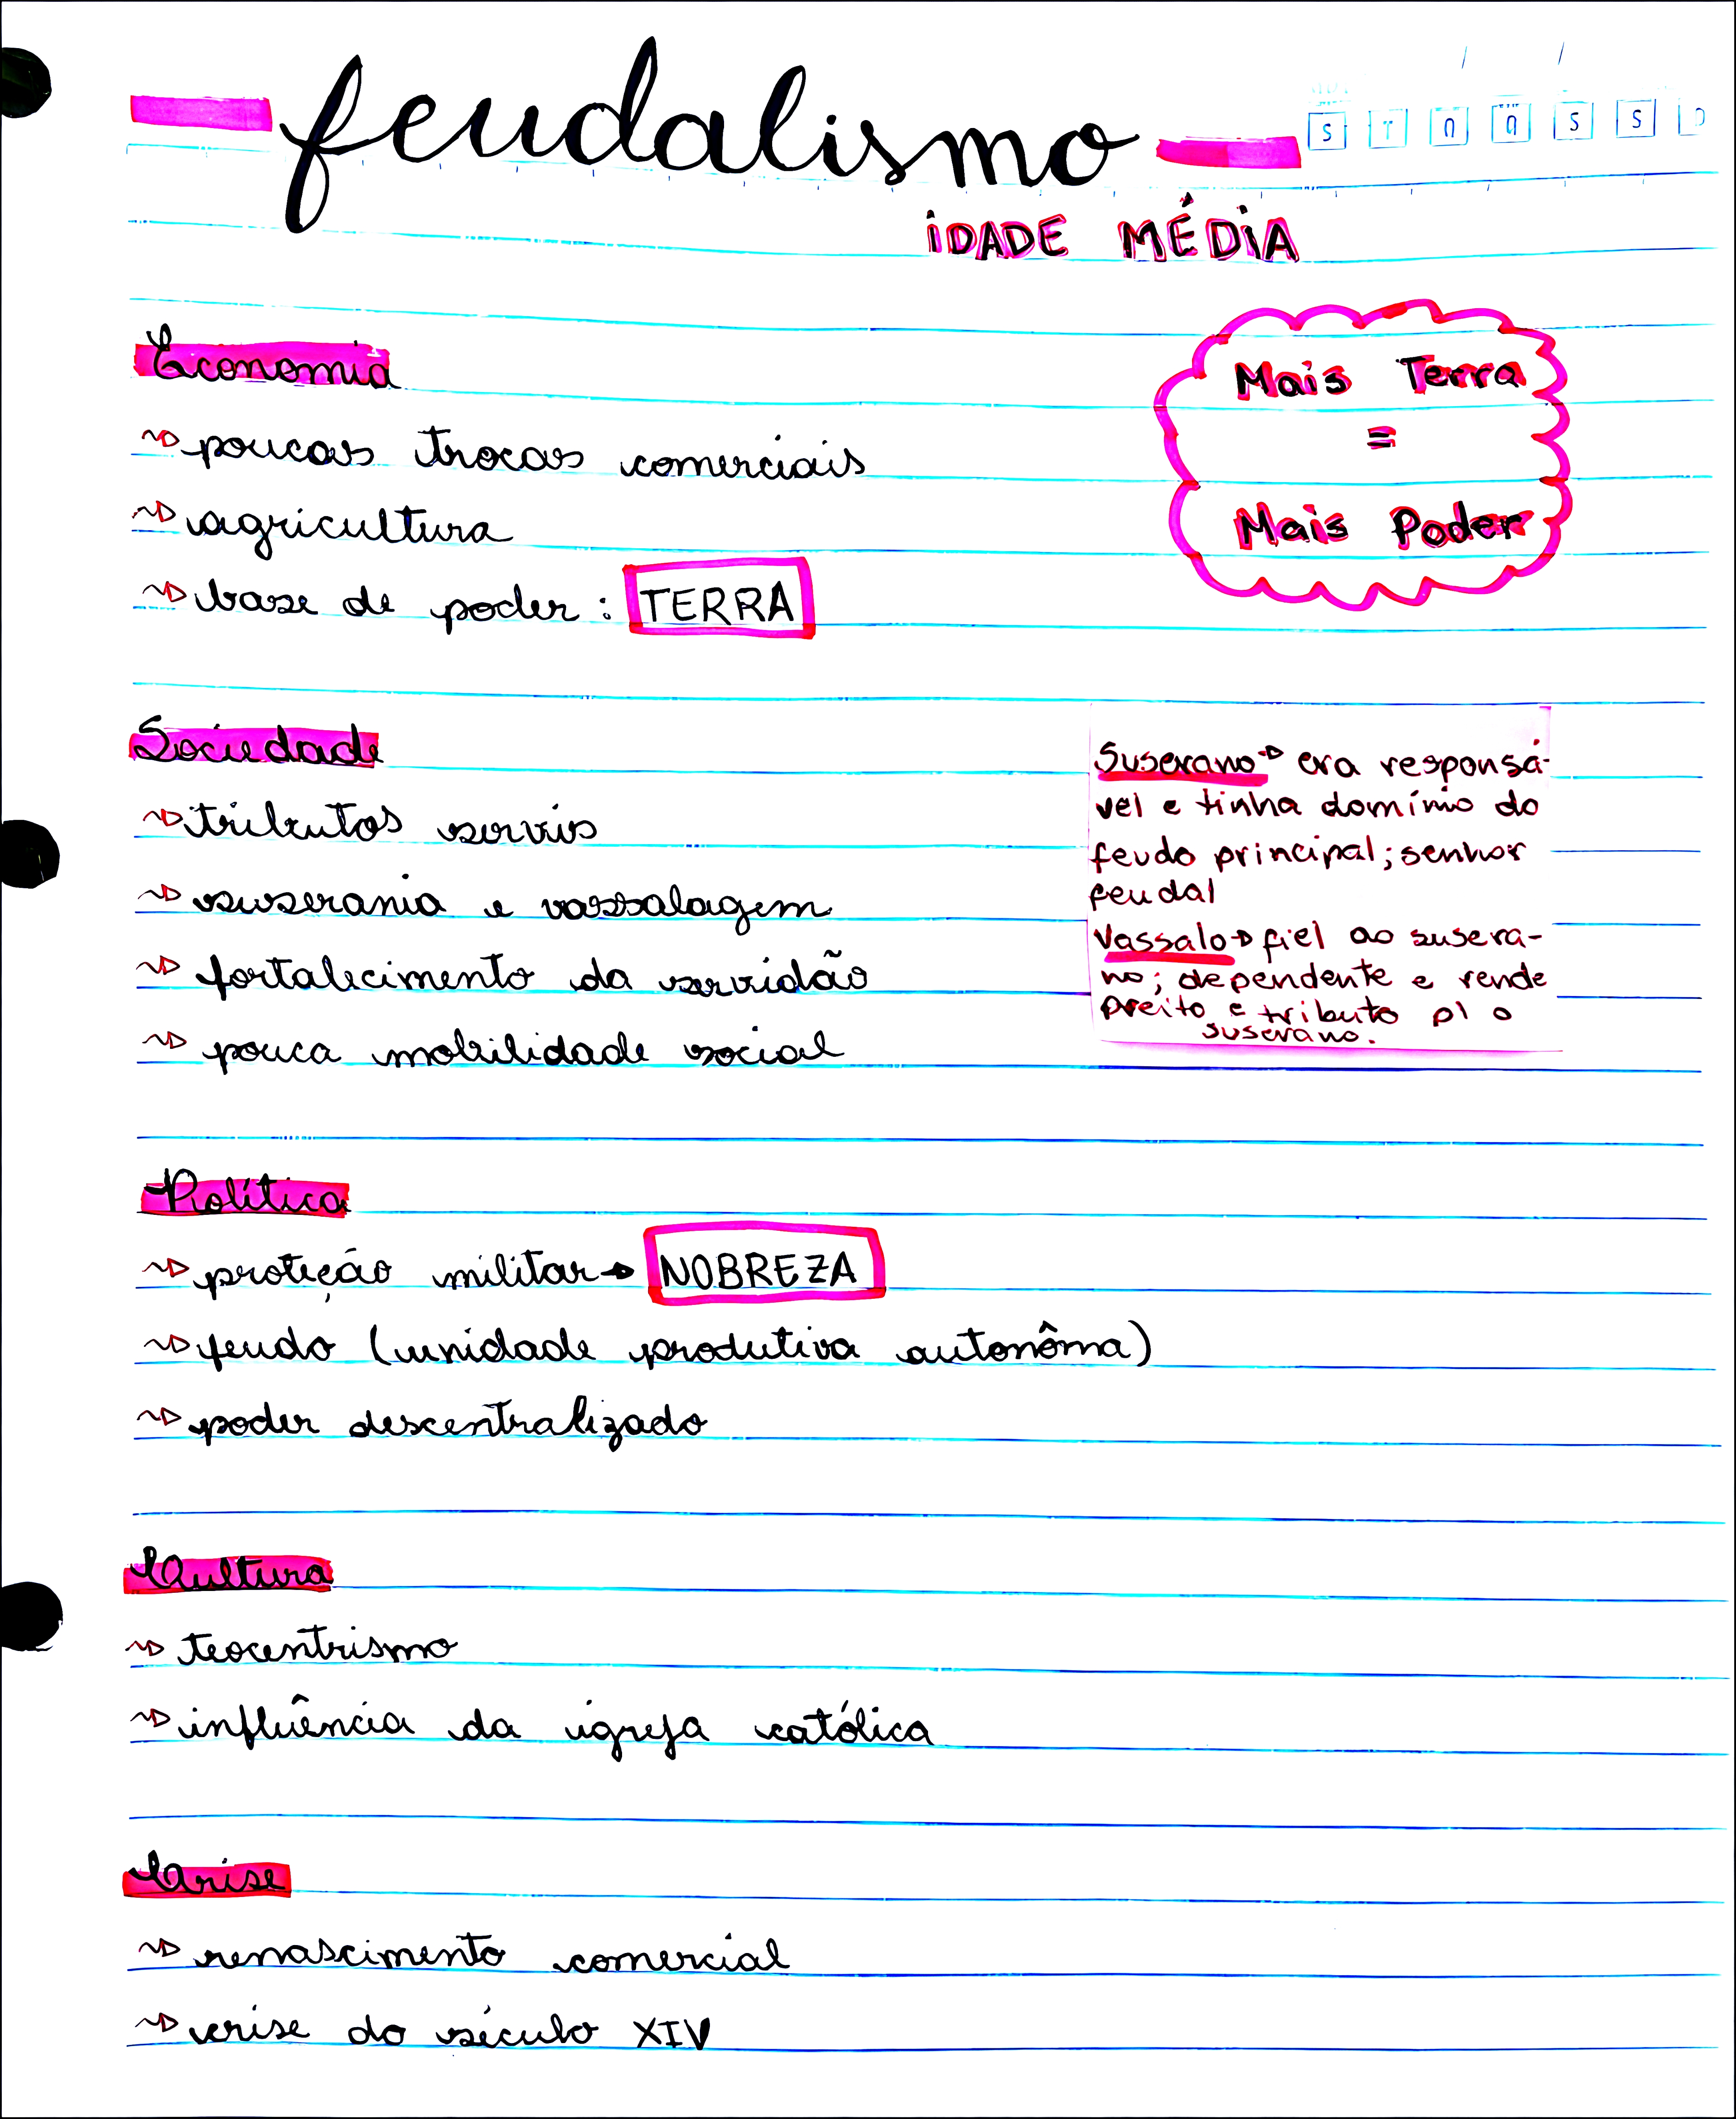 feudalismo
S T Q Q S S D
iDADE MÉDiA
Economia
Mais Terra
=
Mais Poder
poucas trocas comerciais
agricultura
base de poder: TERRA
Sociedade
tributos servis
suserania e vassalagem
fortalecimento da servidão
pouca mobilidade social
Suserano→ era responsá-
vel e tinha domínio do
feudo principal; senhor
feudal
Vassalo→ fiel ao susera-
no; dependente e rende
preito e tributo p/ o
suserano.
Política
proteção militar→ NOBREZA
feudo (unidade produtiva autonôma)
poder descentralizado
Cultura
teocentrismo
influência da igreja católica
Crise
renascimento comercial
crise do século XIV